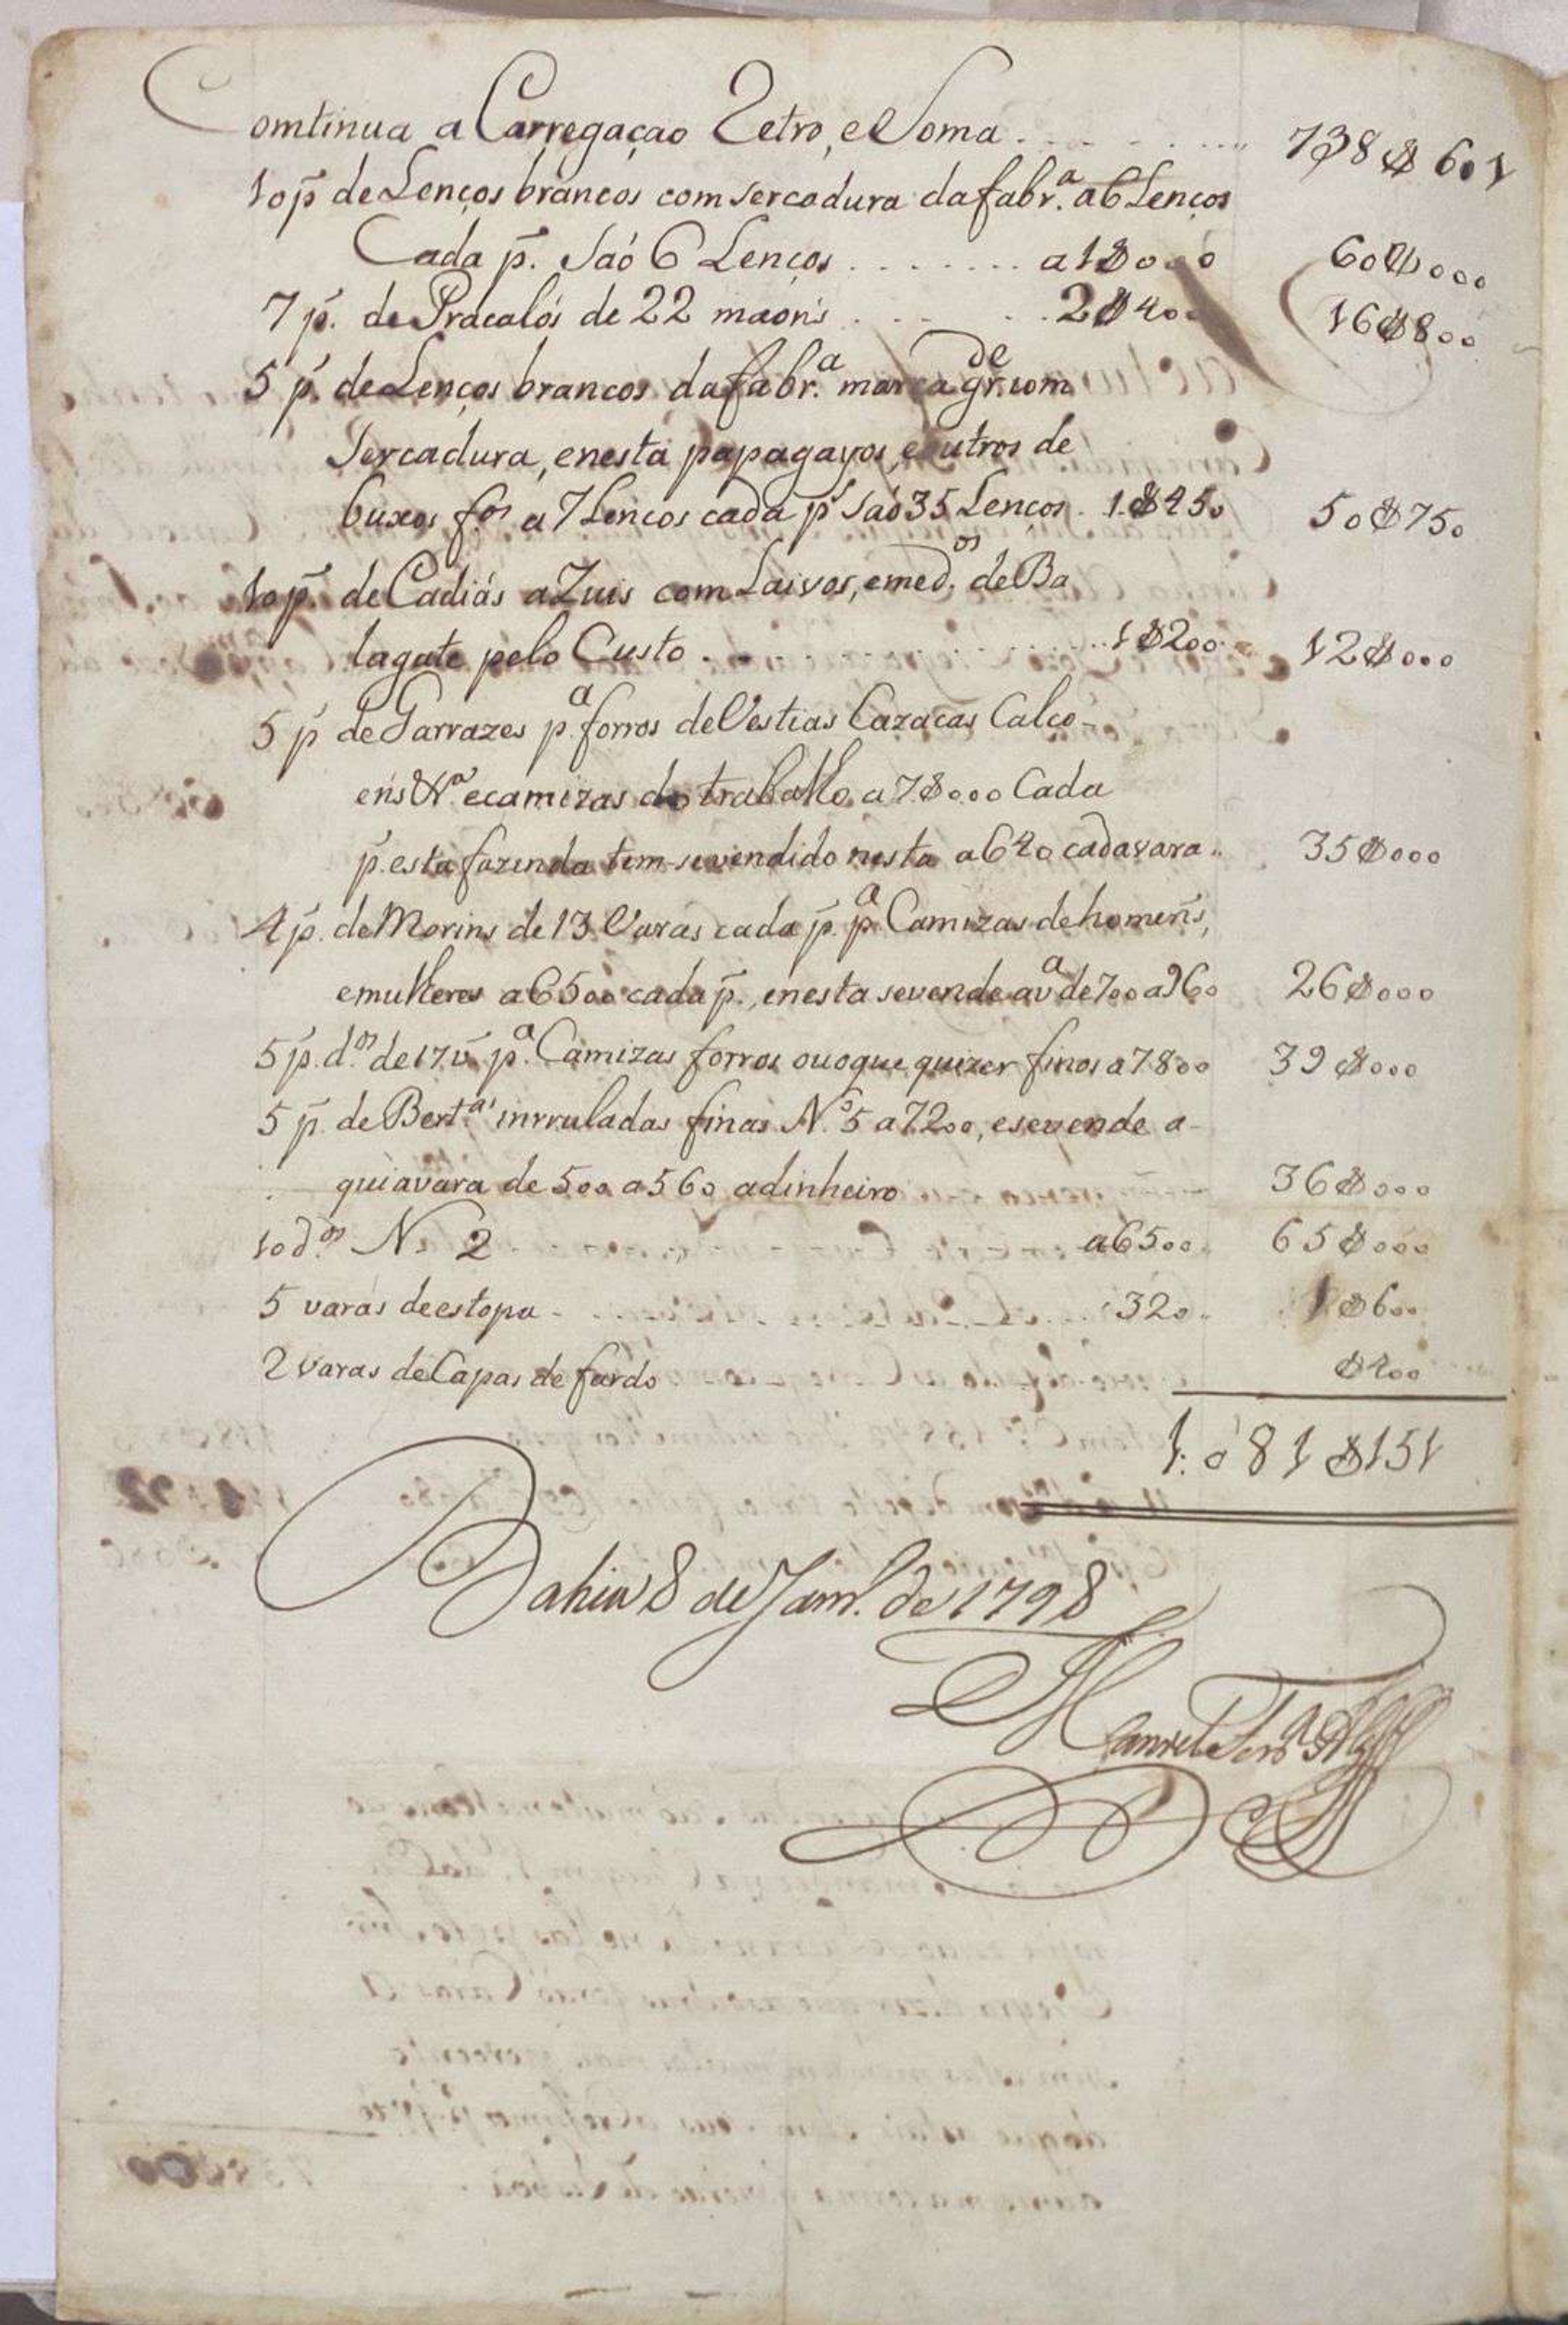 Comtinua a Carregaçao Retro, e Soma . . . . . . . 738$601
10 p. de Lenços brancos com sercadura da fabr.ª a 6 Lenços
Cada p. saó 6 Lenços . . . . . . . a 1$000 60$000
7 p. de Pracalós de 22 maóns . . . . . 2$400 16$800
5 p. de Lenços brancos da fabr.ª marca gr.de com
Sercadura, e nesta papagayos, e outros de
buxos f.os a 7 Lencos cada p. saó 35 Lenços . 1$450 50$750
10 p. de Cadiás aZuis com Laivos, e med.os de Ba
lagate pelo Custo . . . . . . . . . 1$200 12$000
5 p. de Garrazes p.ª forros de Vestias Cazacas Calço-
ens &.ª e camizas do trabalho a 7$000 Cada
p. esta fazenda tem-se vendido nesta a 640 cada vara .. 35$000
4 p. de Morins de 13 Varas cada p. p.ª Camizas de homens,
e mulheres a 6500 cada p., e nesta se vende a v.ª de 700 a 960 26$000
5 p. d.os de 17 v. p.ª Camizas forros ou o que quizer finos a 7800 39$000
5 p. de Bert.as inrruladas finas N.º 5 a 7200, e se vende a-
qui a vara de 500 a 560 a dinheiro 36$000
10 d.os N. 2 a 6500 65$000
5 varas de estopa - . . . . . . . 320 .. 1$600
2 varas de Capas de fardo $400
1:081$151
Bahia 8 de Janr.º de 1798
Manoel